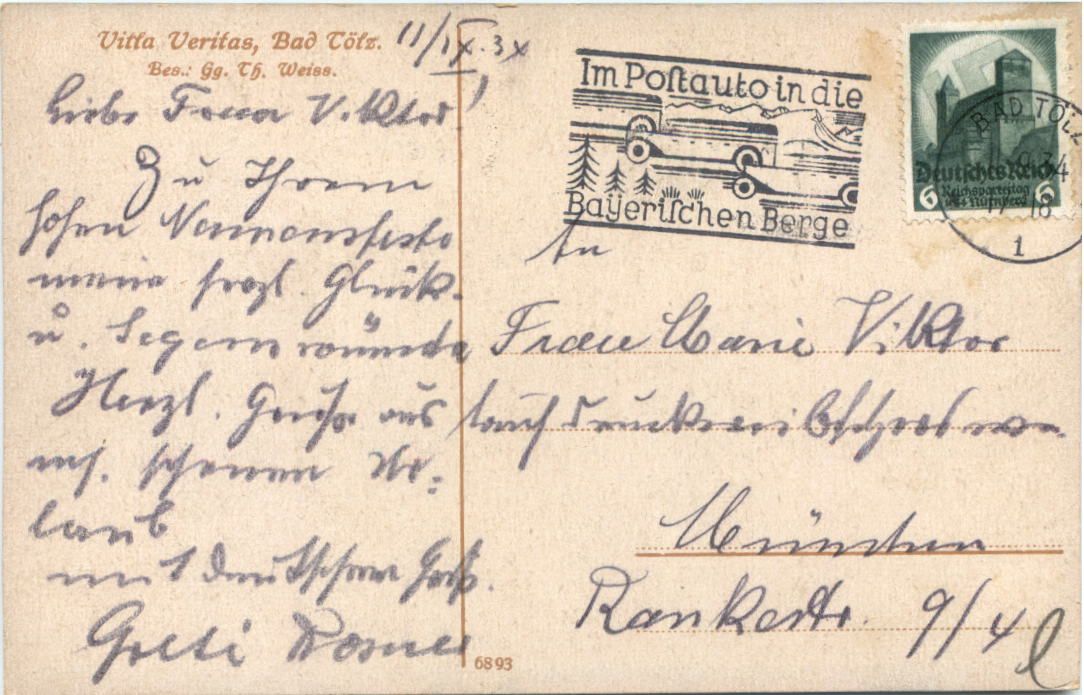 Villa Veritas, Bad Tölz.
Bes.: Gg. Th. Weiss.
11/IX. 34
Liebe Frau Viktor,
Zu Ihrem
hohen Namensfeste
meine herzl. Glück-
u. Segenswünsche
Herzl. Grüße aus
mh. schönen Ur-
laub
mit deutschem Gruß.
Gretl
6893
Im Postauto in die
Bayerischen Berge
BAD TÖLZ
34
17-18
1
Deutsches Reich
6 Reichsparteitag 6
1934 Nürnberg
An
Frau Marie Viktor
München
Rankestr. 9/4 l